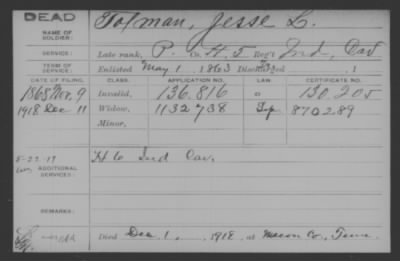 DEAD
NAME OF SOLDIER:
Tolman, Jesse L.
SERVICE:
Late rank, P. Co. H. 5 Reg't Ind. Cav
TERM OF SERVICE:
Enlisted May 1 1863 Discharged , 1
DATE OF FILING. CLASS. APPLICATION NO. LAW. CERTIFICATE NO.
1868 Nov. 9 Invalid, 136.816 130.205
1918 Dec 11 Widow, 1132738 8702.89
Minor,
ADDITIONAL SERVICES:
H 6 Ind Cav.
REMARKS:
Died Dec. 1, 1918, at Macon Co., Tenn.